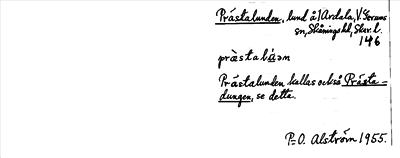 Prästalunden, lund å 1 Ardala, V. Gerums
sn, Skånings hd, Skar. l.
146
præstalúən
Prästalunden kallas också Prästa-
dungen, se detta.
P-O. Alström 1955.